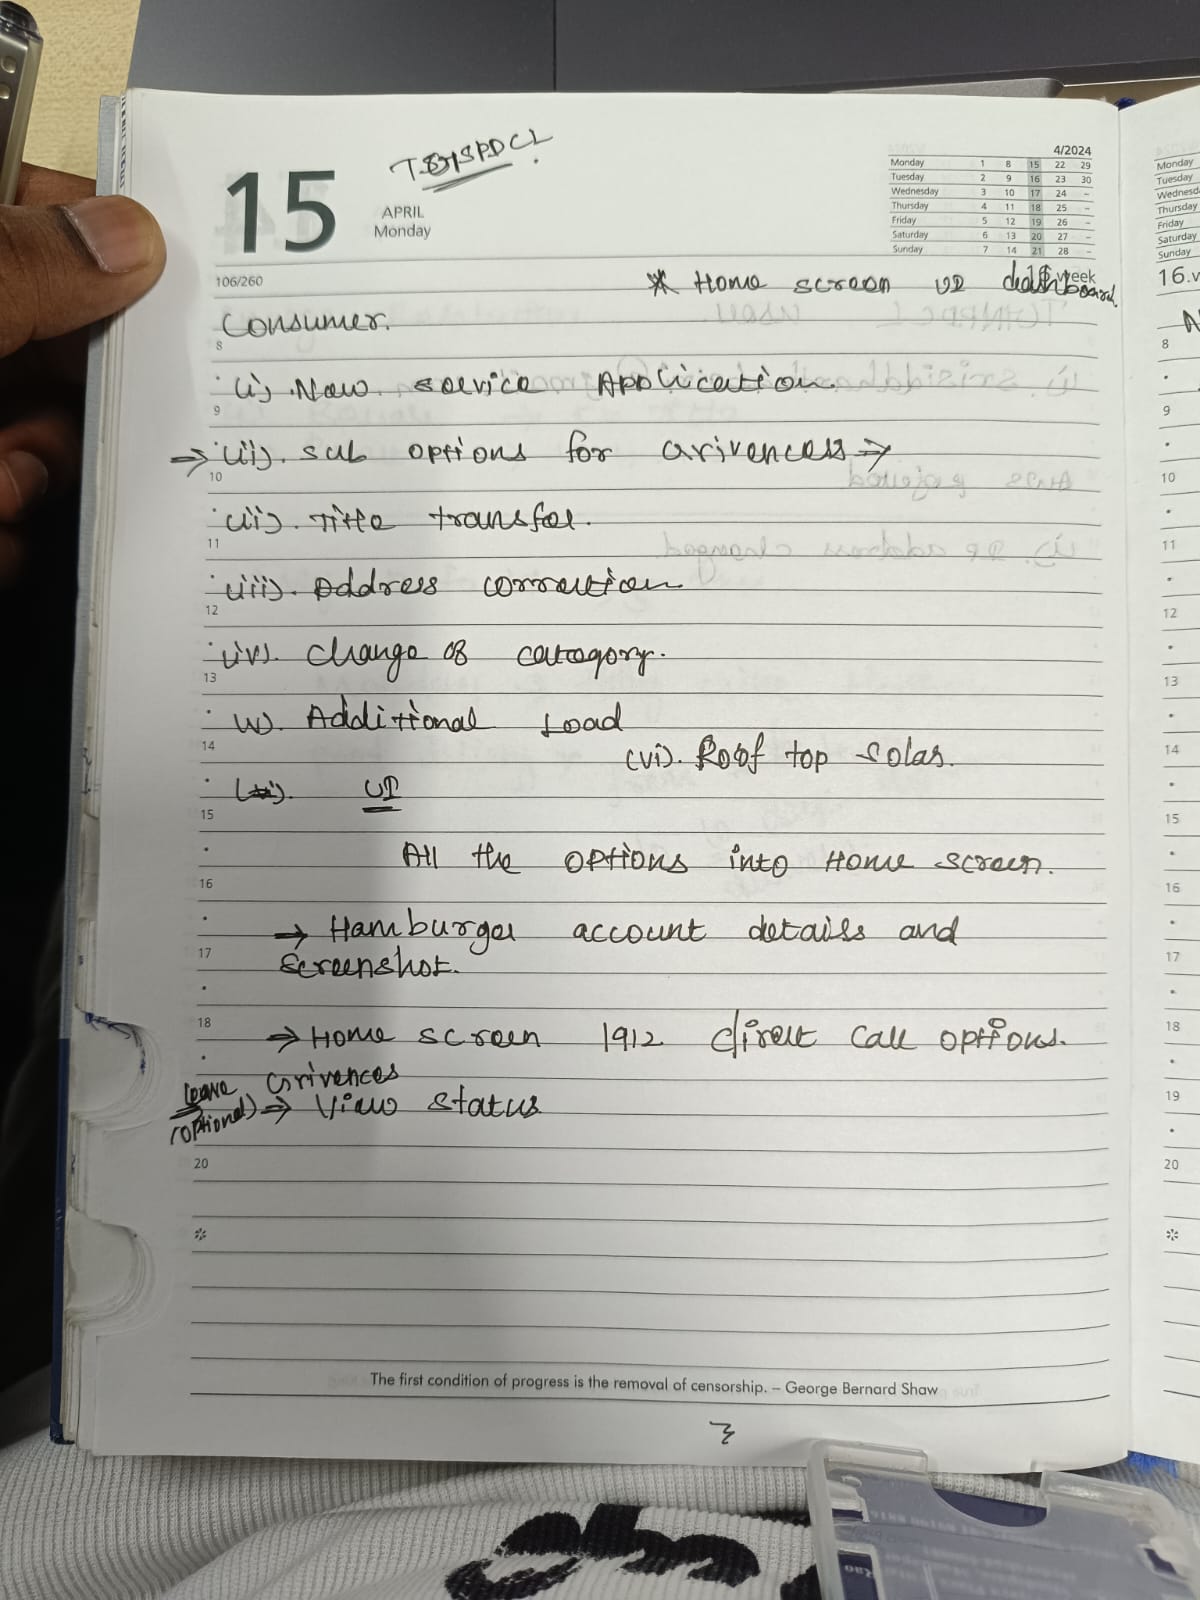 TGSPDCL.
15
APRIL
Monday
4/2024
Monday 1 8 15 22 29
Tuesday 2 9 16 23 30
Wednesday 3 10 17 24 -
Thursday 4 11 18 25 -
Friday 5 12 19 26 -
Saturday 6 13 20 27 -
Sunday 7 14 21 28 -
106/260
* Home screen UI dashboard.
Consumer.
8
(i). New service Application.
9
→ (ii). sub options for Grivences →
10
(ii). Title transfer.
11
(iii). Address correction
12
(iv). change of category.
13
(v). Additional Load
14
(vi). Roof top Solar.
UI
15
All the options into Home screen.
16
→ Hamburger account details and
17
Screenshot.
18
→ Home screen 1912 direct call options.
Grivences
(optional) → View status
19
20
The first condition of progress is the removal of censorship. – George Bernard Shaw
3
Monday
Tuesday
Wednesd
Thursday
Friday
Saturday
Sunday
16.
8
9
10
11
12
13
14
15
16
17
18
19
20